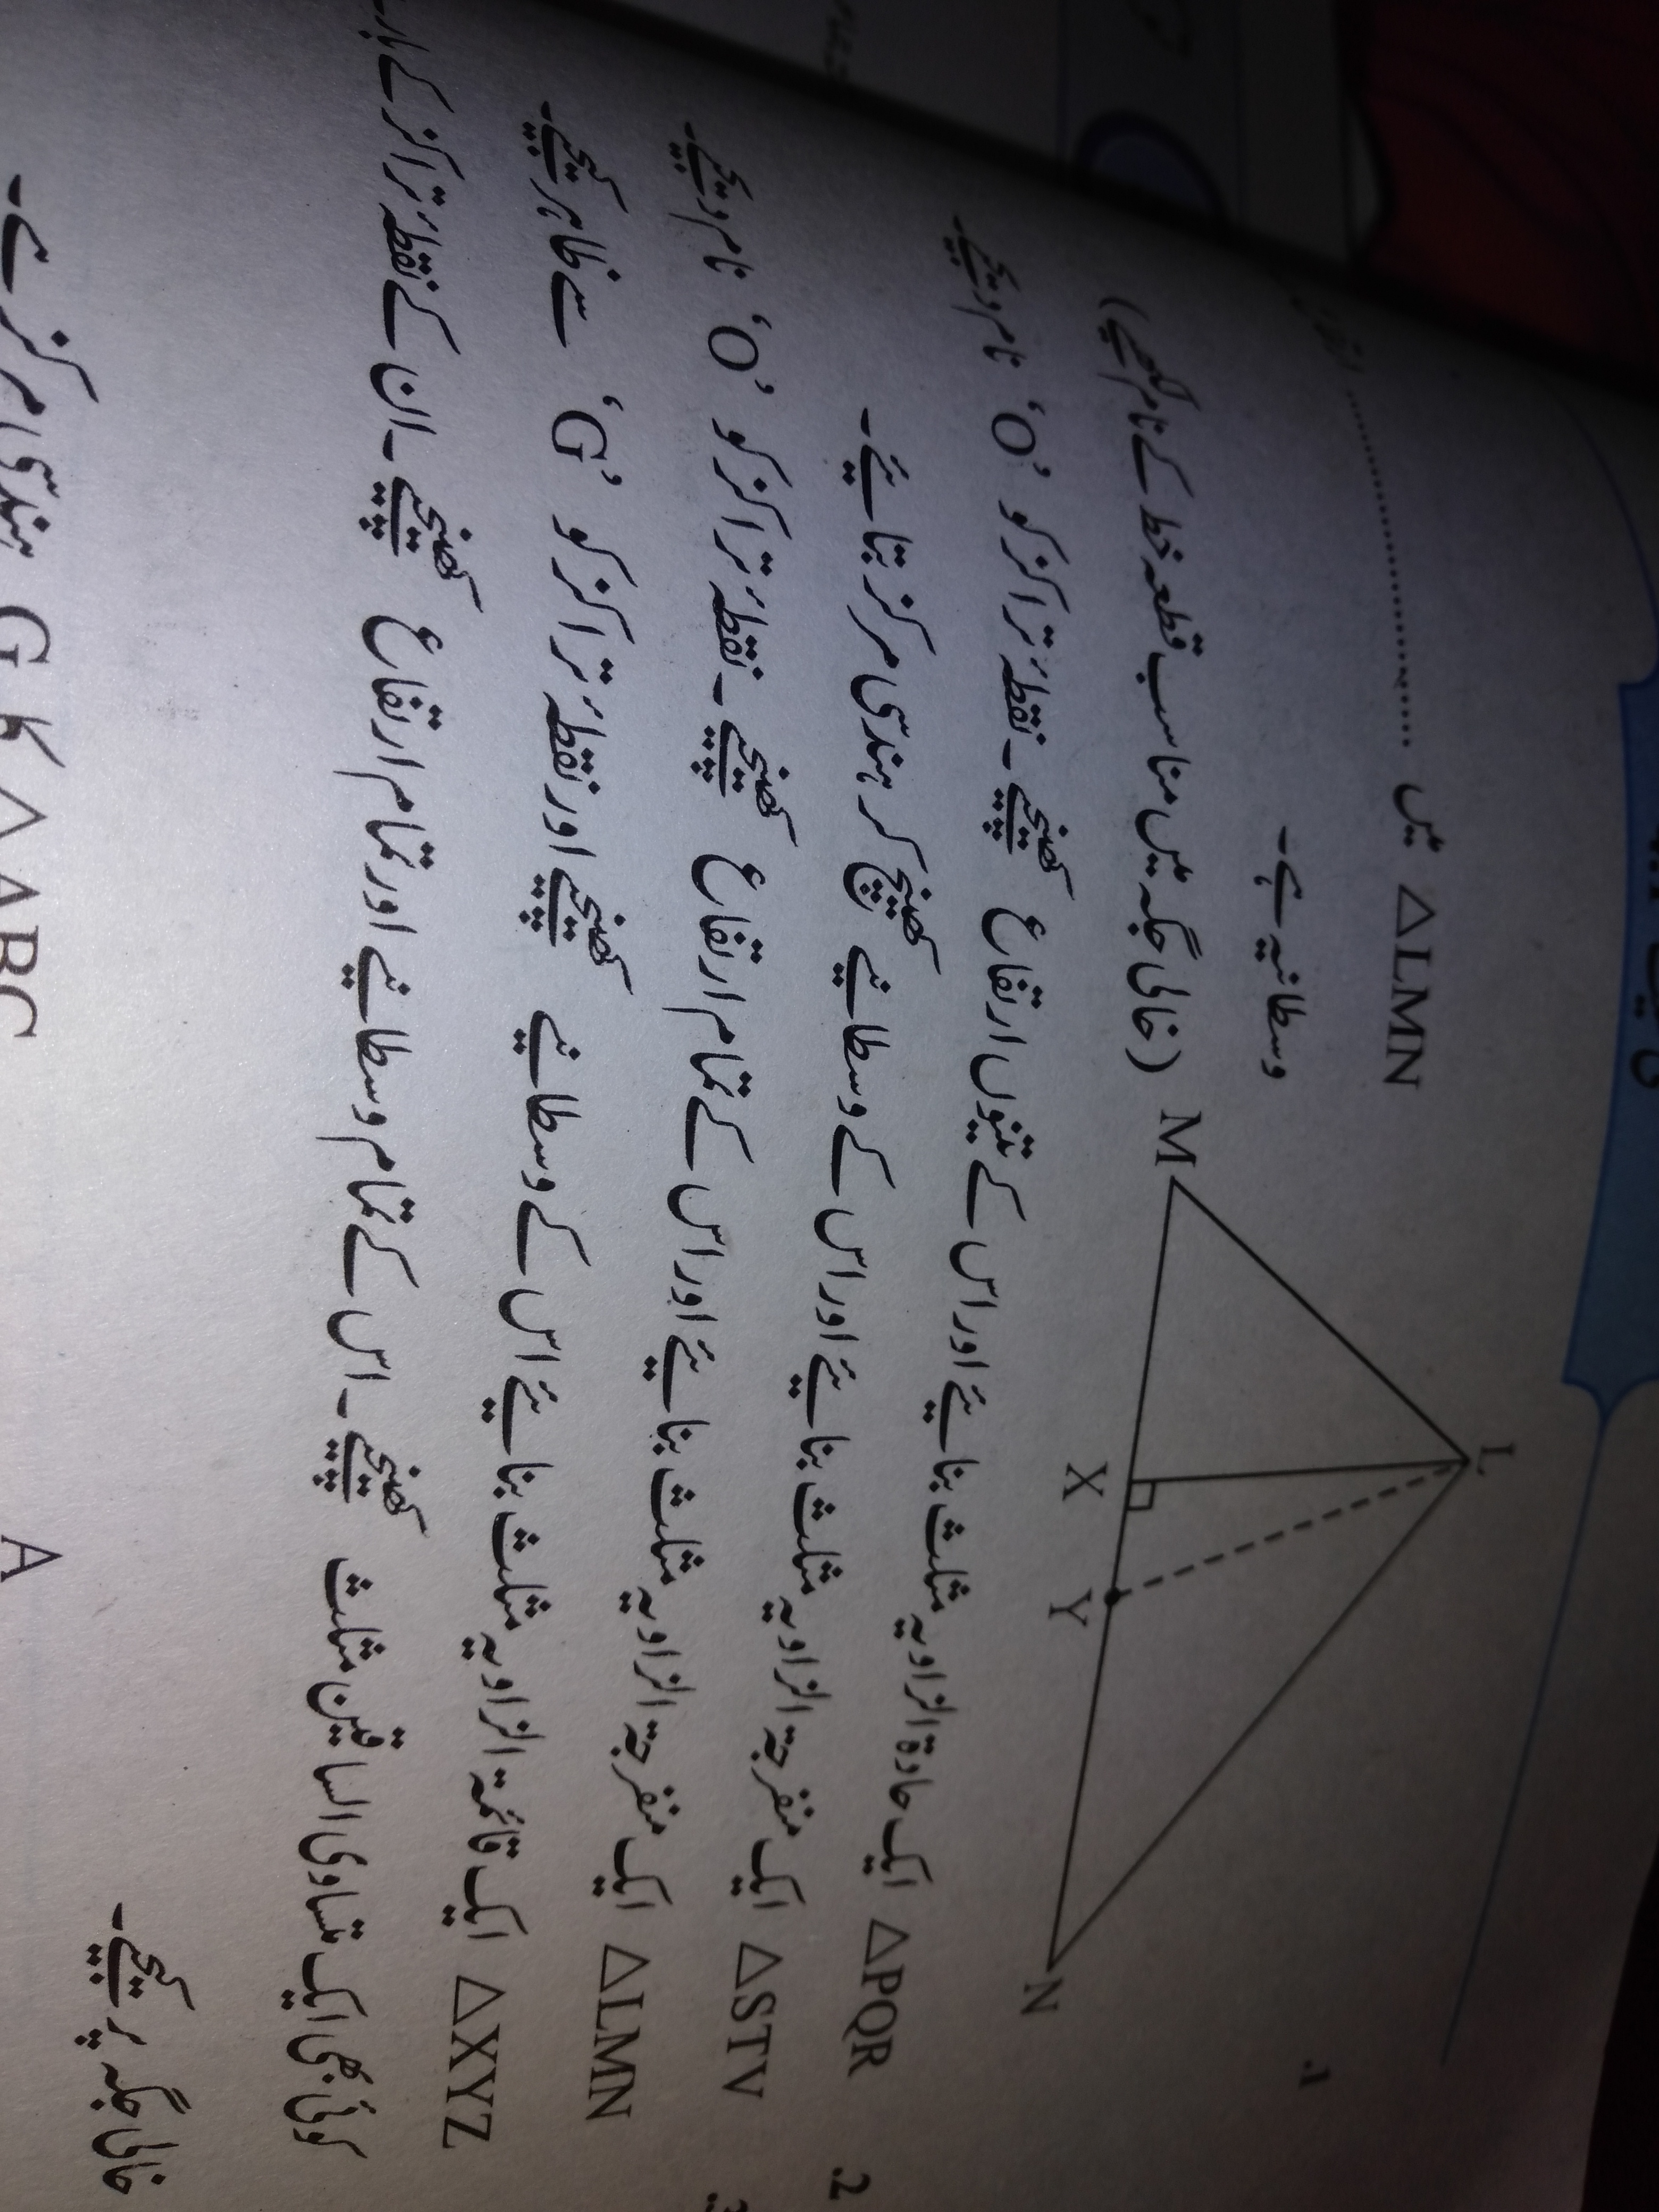 .1
△LMN میں ....................
وسطانیہ ہے۔
(خالی جگہ میں مناسب قطعہ خط کے نام لکھیے)
L
M
X
Y
N
.2 △PQR ایک حادۃ الزاویہ مثلث بنائیے اور اس کے تینوں ارتفاع کھینچیے۔ نقطۂ تراکز کو ‘O’ نام دیجیے۔
△STV ایک منفرجۃ الزاویہ مثلث بنائیے اور اس کے وسطانیے کھینچ کر ہندسی مرکز بتائیے۔
△LMN ایک منفرجۃ الزاویہ مثلث بنائیے اور اس کے تمام ارتفاع کھینچیے۔ نقطۂ تراکز کو ‘O’ نام دیجیے۔
△XYZ ایک قائمۃ الزاویہ مثلث بنائیے اس کے وسطانیے کھینچیے اور نقطۂ تراکز کو ‘G’ سے ظاہر کیجیے۔
کوئی بھی ایک متساوی الساقین مثلث کھینچیے۔ اس کے تمام وسطانیے اور تمام ارتفاع کھینچیے۔ ان کے نقطۂ تراکز کے
خالی جگہ پر کیجیے۔
A
△ABC کا G ہندسی مرکز ہے۔